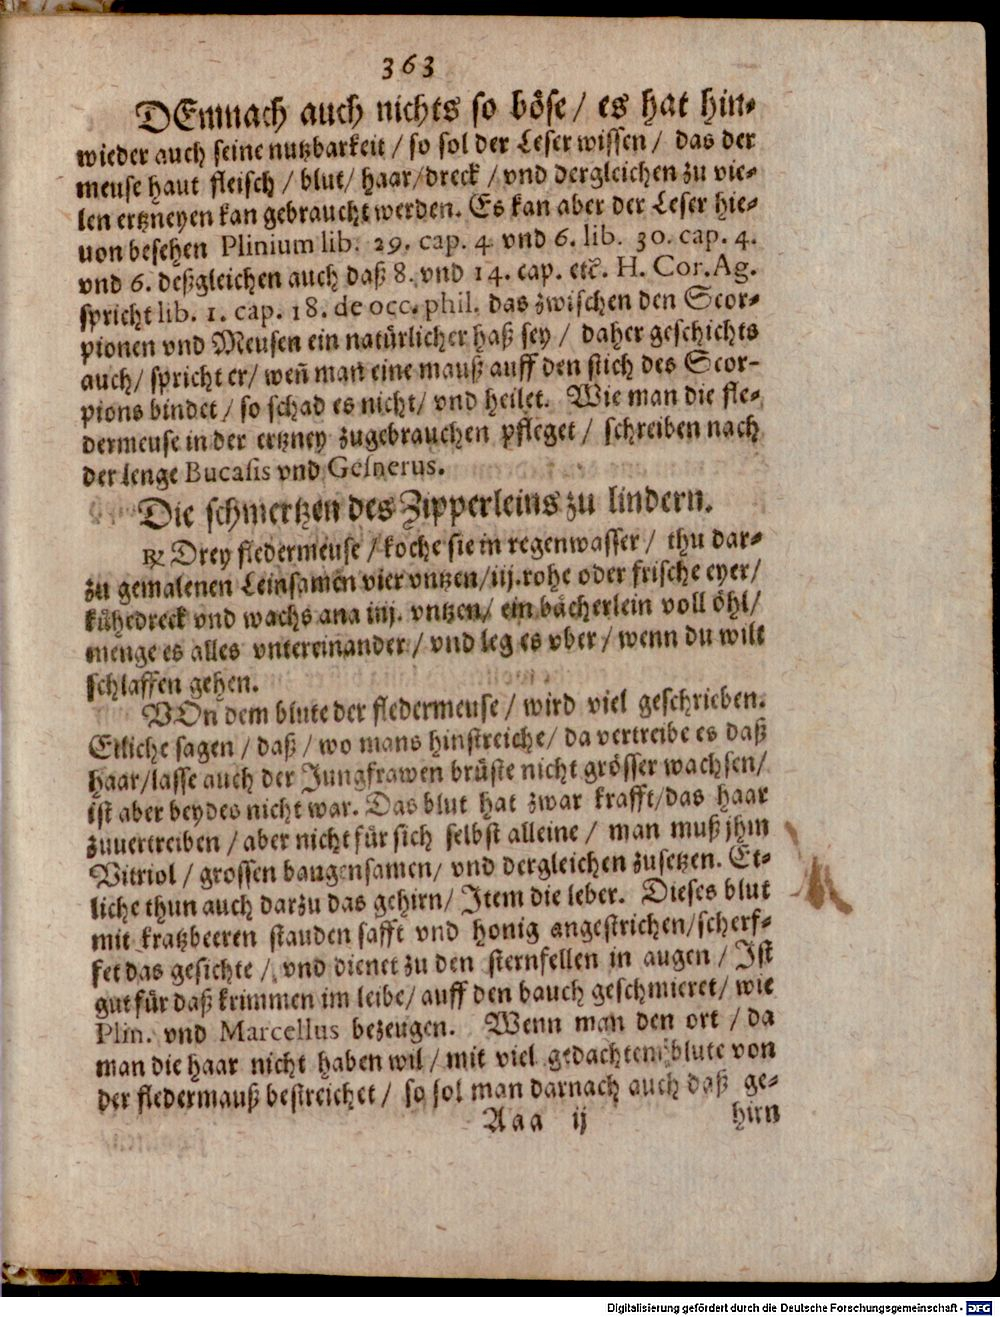 363
DEmnach auch nichts so böse / es hat hin-
wieder auch seine nutzbarkeit / so sol der Leser wissen / das der
meuse haut fleisch / blut / haar / dreck / vnd dergleichen zu vie-
len ertzneyen kan gebraucht werden. Es kan aber der Leser hie-
uon besehen Plinium lib. 29. cap. 4 vnd 6. lib. 30. cap. 4.
vnd 6. deßgleichen auch daß 8. vnd 14. cap. etc. H. Cor. Ag.
spricht lib. 1. cap. 18. de occ. phil. das zwischen den Scor-
pionen vnd Meusen ein natürlicher haß sey / daher geschichts
auch / spricht er / weñ man eine mauß auff den stich des Scor-
pions bindet / so schad es nicht / vnd heilet. Wie man die fle-
dermeuse in der ertzney zugebrauchen pfleget / schreiben nach
der lenge Bucasis vnd Gesnerus.
Die schmertzen des Zipperleins zu lindern.
℞ Drey fledermeuse / koche sie in regenwasser / thu dar-
zu gemalenen Leinsamen vier vntzen / iij. rohe oder frische eyer /
kühedreck vnd wachs ana iiij. vntzen / ein bächerlein voll öhl /
menge es alles vntereinander / vnd leg es vber / wenn du wilt
schlaffen gehen.
VOn dem blute der fledermeuse / wird viel geschrieben.
Etliche sagen / daß / wo mans hinstreiche / da vertreibe es daß
haar / lasse auch der Jungfrawen brüste nicht grösser wachsen /
ist aber beydes nicht war. Das blut hat zwar krafft / das haar
zuuertreiben / aber nicht für sich selbst alleine / man muß jhm
Vitriol / grossen baugensamen / vnd dergleichen zusetzen. Et-
liche thun auch darzu das gehirn / Item die leber. Dieses blut
mit kratzbeeren stauden safft vnd honig angestrichen / scherf-
fet das gesichte / vnd dienet zu den sternfellen in augen / Ist
gut für daß krimmen im leibe / auff den bauch geschmieret / wie
Plin. vnd Marcellus bezeugen. Wenn man den ort / da
man die haar nicht haben wil / mit viel gedachtem blute von
der fledermauß bestreichet / so sol man darnach auch daß ge-
Aaa ij hirn
Digitalisierung gefördert durch die Deutsche Forschungsgemeinschaft - DFG